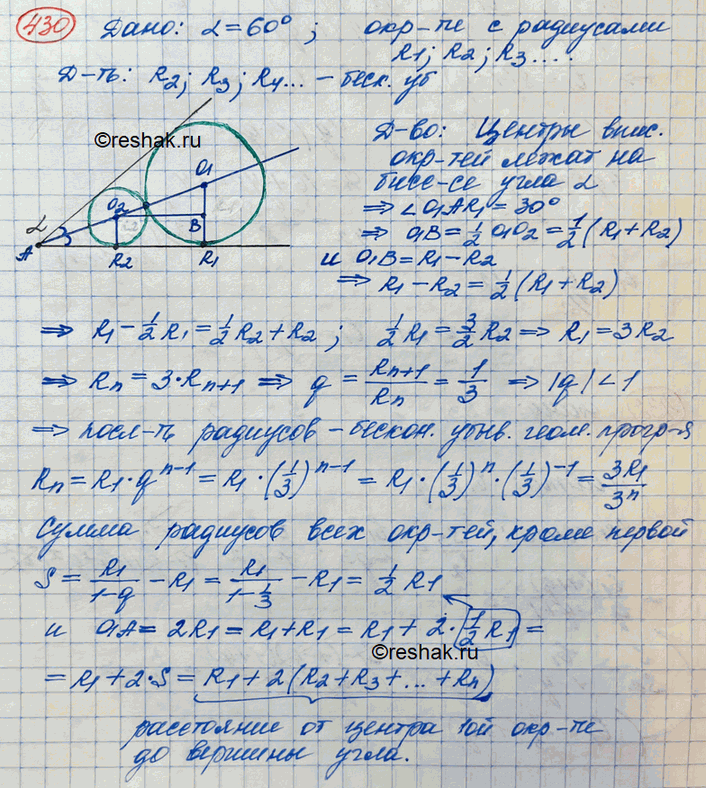 430 Дано: α = 60° ; окр-ти с радиусами
R1; R2; R3 ....
Д-ть: R2; R3; R4... – беск. уб
©reshak.ru
α
A
O2
O1
B
R2
R1
Д-во: Центры впис.
окр-тей лежат на
бисс-се угла α
⇒ ∠O1AR1 = 30°
⇒ O1B = 1/2 O1O2 = 1/2 (R1+R2)
и O1B = R1 – R2
⇒ R1 – R2 = 1/2 (R1+R2)
⇒ R1 – 1/2 R1 = 1/2 R2 + R2 ; 1/2 R1 = 3/2 R2 ⇒ R1 = 3R2
⇒ Rn = 3·Rn+1 ⇒ q = Rn+1/Rn = 1/3 ⇒ |q| < 1
⇒ посл-ть радиусов – бескон. убыв. геом. прогр-я
Rn = R1·q^(n-1) = R1·(1/3)^(n-1) = R1·(1/3)^n·(1/3)^(-1) = 3R1/3^n
Сумма радиусов всех окр-тей, кроме первой
S = R1/(1-q) – R1 = R1/(1-1/3) – R1 = 1/2 R1
и O1A = 2R1 = R1 + R1 = R1 + 2·1/2 R1 =
©reshak.ru
= R1 + 2·S = R1 + 2(R2 + R3 + ... + Rn)
расстояние от центра 1ой окр-ти
до вершины угла.